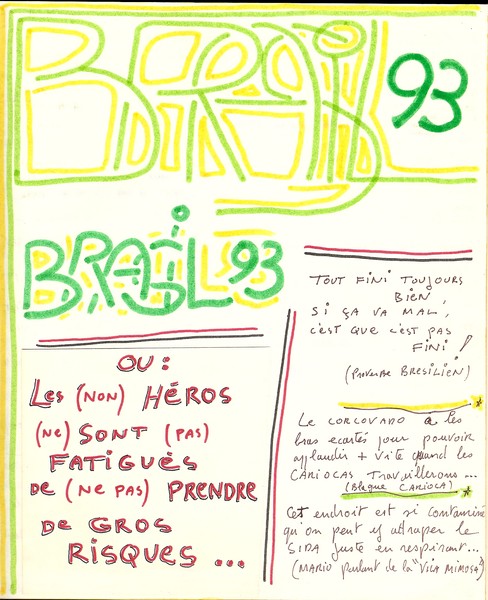 BRASIL 93
BRASIL 93
OU:
Les (NON) HÉROS
(NE) SONT (PAS)
FATIGUÉS
DE (NE PAS) PRENDRE
DE GROS
RISQUES ...
TOUT FINI TOUJOURS
BIEN,
SI ÇA VA MAL,
C'EST QUE C'EST PAS
FINI !
(Proverbe BRESILIEN)
Le CORCOVADO a les
bras ecartés pour pouvoir
applaudir + vite quand les
CARIOCAS Travailleront ...
(Blague CARIOCA)
Cet endroit est si contaminé
qu'on peut y attraper le
SIDA juste en respirant...
(MARIO parlant de la "VILA MIMOSA")